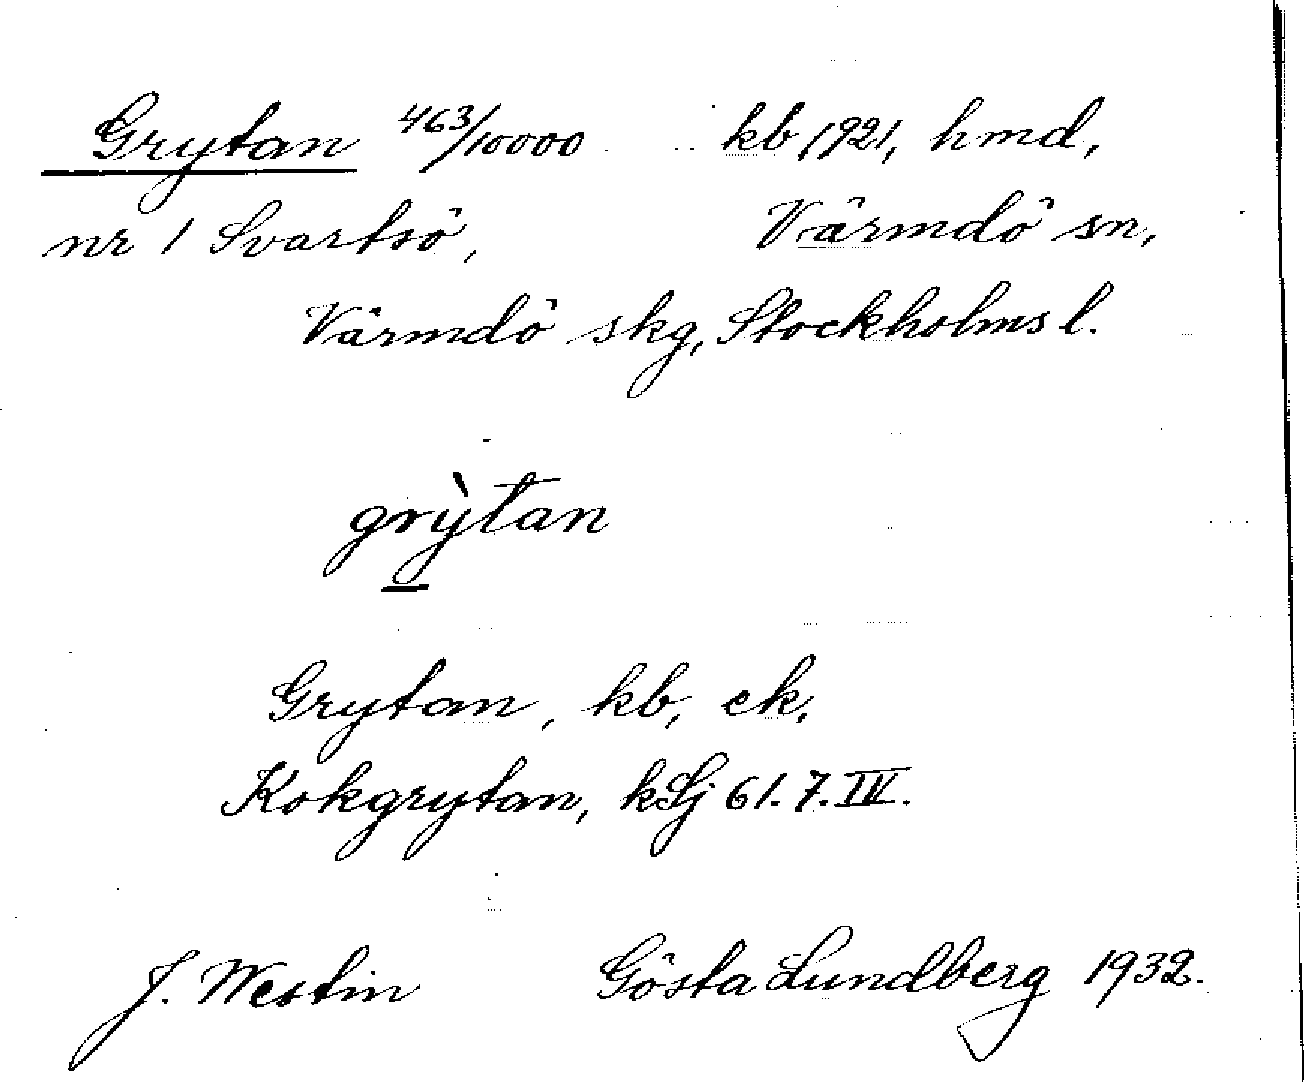 Grytan 463/10000 kb 1921, hmd,
nr 1 Svartsö, Värmdö sn,
Värmdö skg, Stockholms l.
grỳtan
Grytan, kb, ek,
Kokgrytan, kLj 61.7.IV.
J. Westin Gösta Lundberg 1932.